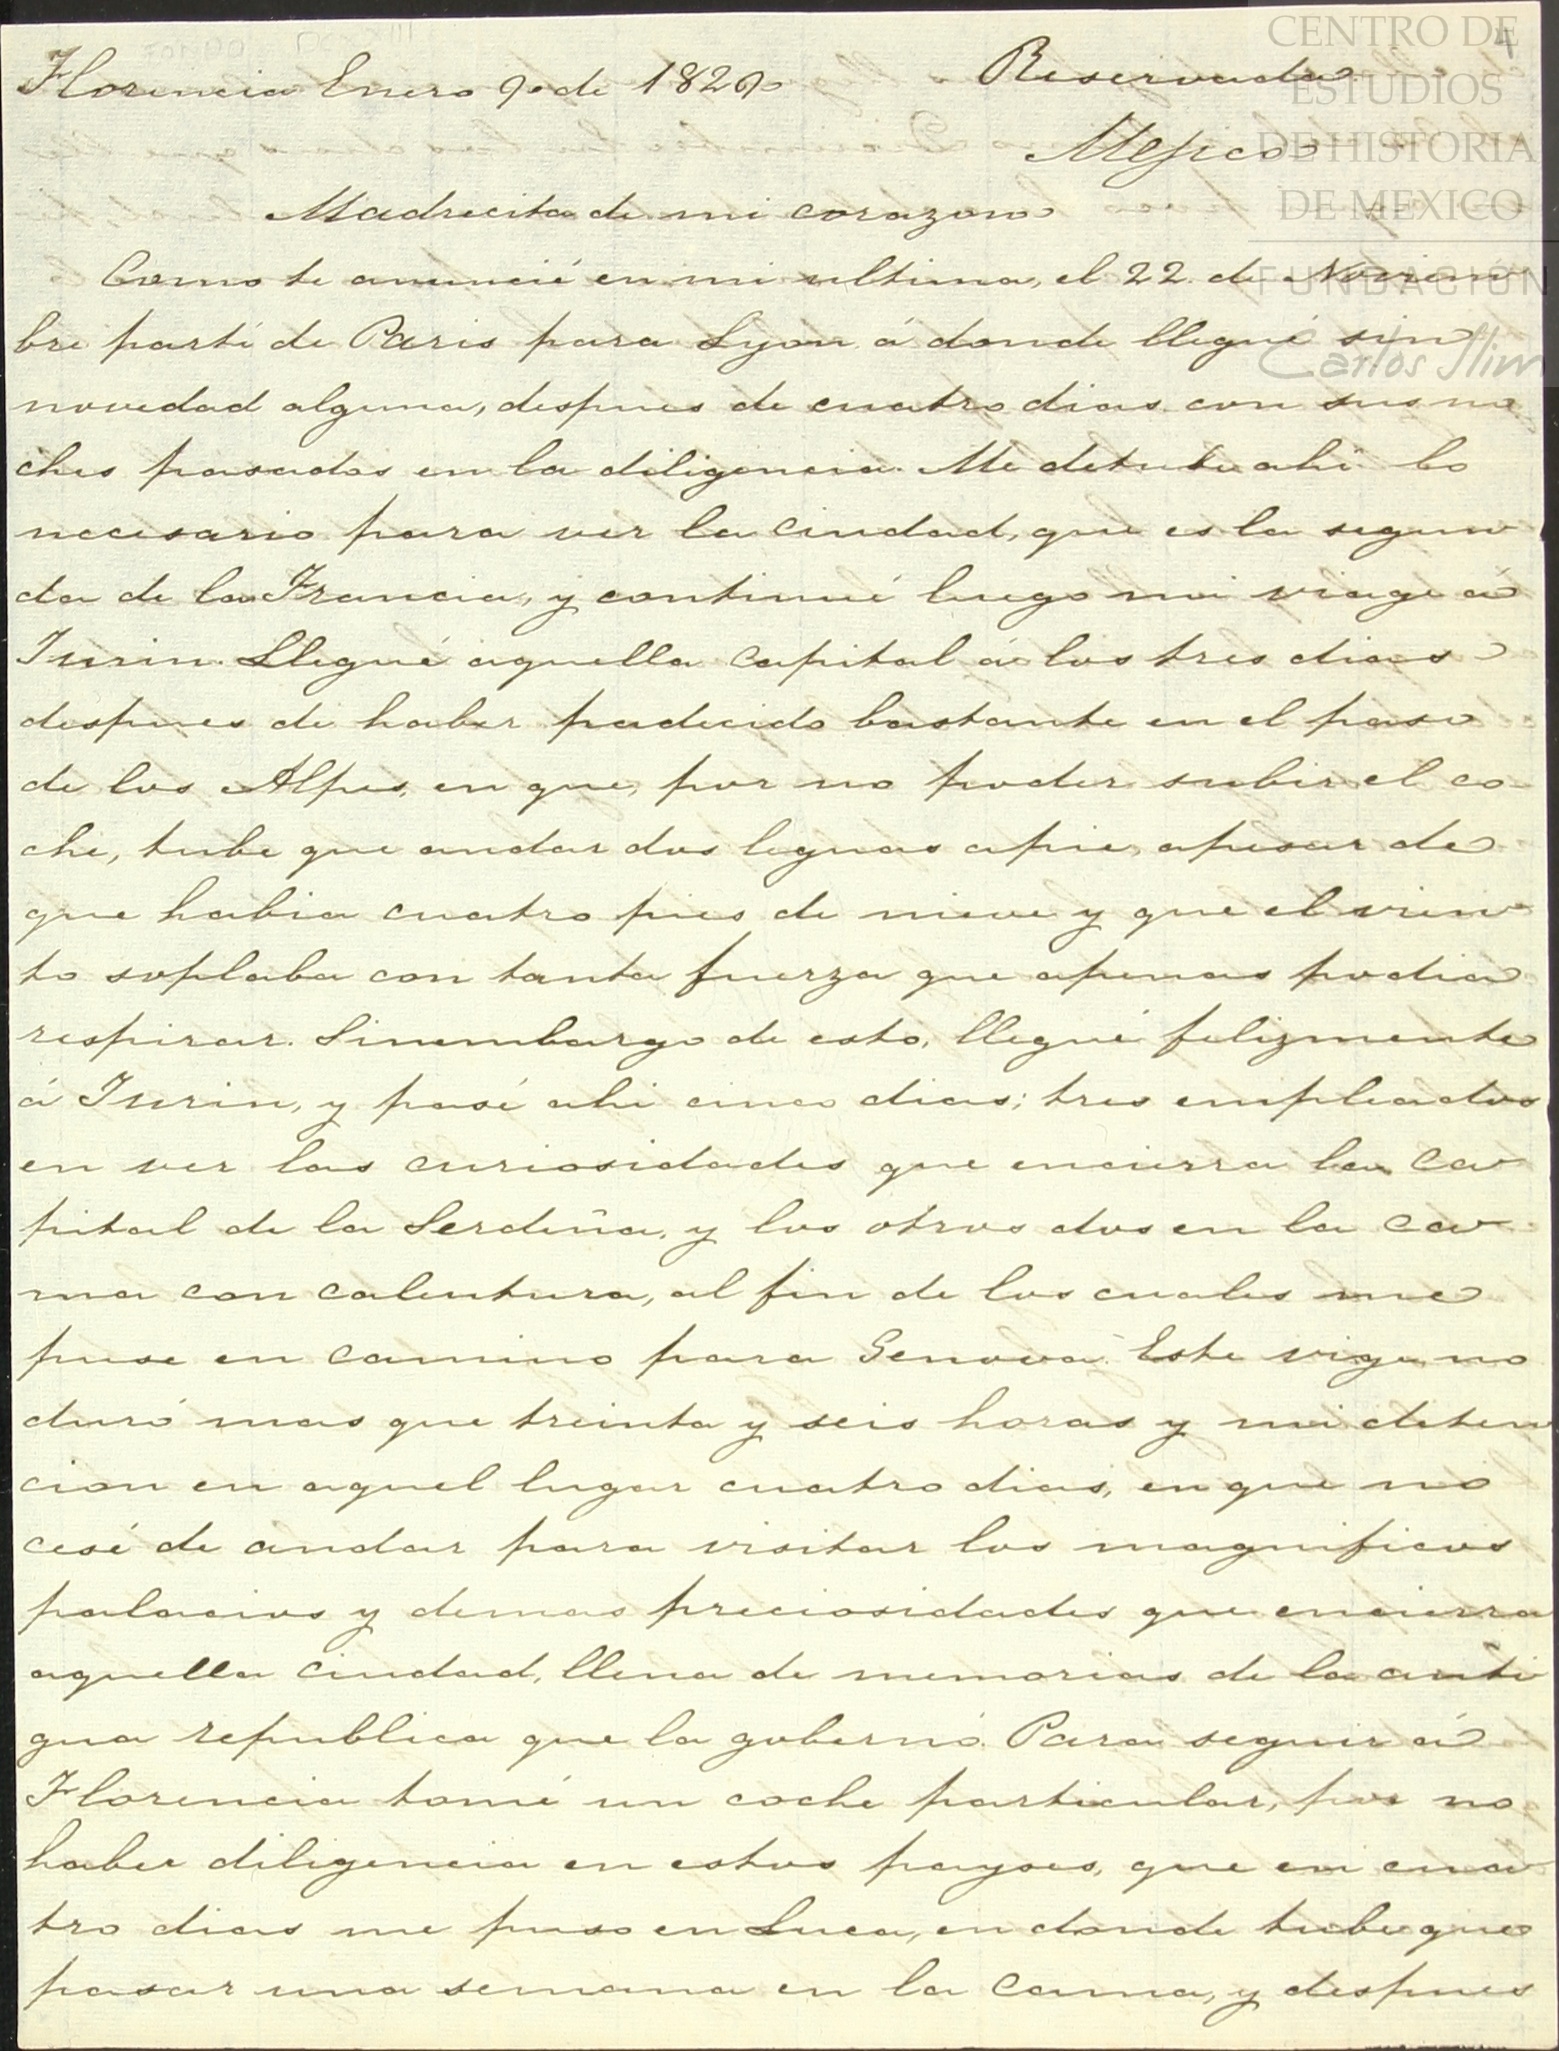 4
CENTRO DE
ESTUDIOS
DE HISTORIA
DE MEXICO
FUNDACIÓN
Carlos Slim
Florencia Enero 9 de 1829 Reservada
Mejico
Madrecita de mi corazon
Como te anuncié en mi ultima, el 22 de Noviem
bre partí de Paris para Lyon á donde llegué sin
novedad alguna, despues de cuatro dias con sus no
ches pasados en la diligencia. Me detube ahi lo
necesario para ver la ciudad, que es la segun
da de la Francia, y continué luego mi viage á
Turin. Llegué aquella capital á los tres dias
despues de haber padecido bastante en el paso
de los Alpes, en que, por no poder subir el co-
che, tube que andar dos leguas apie, apesar de
que habia cuatro pies de nieve y que el vien
to soplaba con tanta fuerza que apenas podia
respirar. Sinembargo de esto, llegué felizmente
á Turin, y pasé ahi cinco dias; tres empleados
en ver las curiosidades que encierra la ca
pital de la Serdeña, y los otros dos en la ca
ma con calentura, al fin de los cuales me
puse en camino para Genova. Este vige no
duró mas que treinta y seis horas y mi deten
cion en aquel lugar cuatro dias, en que no
cesé de andar para visitar los magnificos
palacios y demas preciosidades que encierra
aquella ciudad, llena de memorias de la anti
gua republica que la gobernó. Para seguir á
Florencia tomé un coche particular, por no
haber diligencia en estos payses, que en cua
tro dias me puso en Luca, en donde tube que
pasar una semana en la cama, y despues